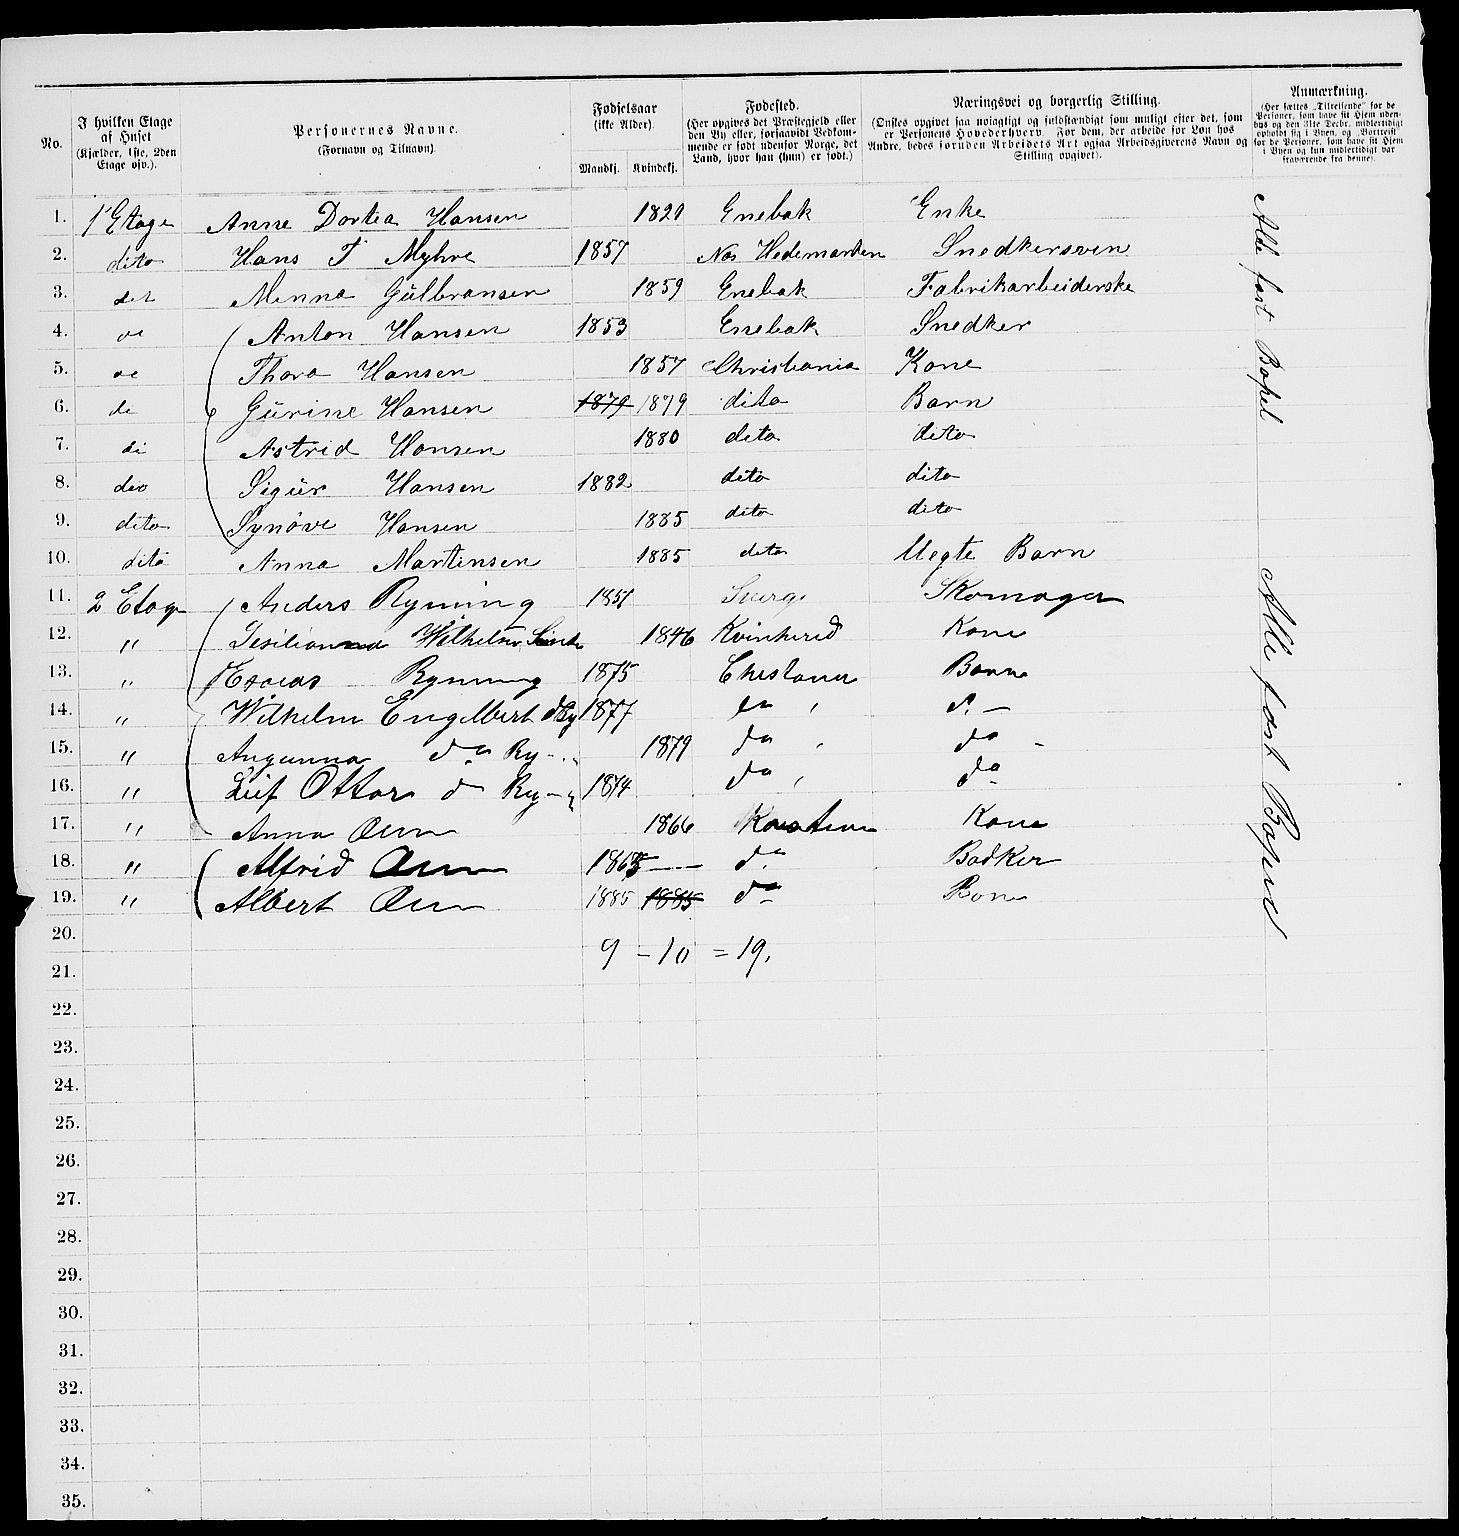 No. I hvilken Etage af Huset (Kjælder, 1ste, 2den Etage osv.). Personernes Navne. (Fornavn og Tilnavn). Fødselsaar (ikke Alder). Mandkj. Kvindekj. Fødested. (Her opgives det Præstegjeld eller den By eller, forsaavidt Vedkommende er født udenfor Norge, det Land, hvor han (hun) er født.) Næringsvei og borgerlig Stilling. (Ønskes opgivet saa nøiagtigt og fuldstændigt som muligt efter det, som er Personens Hovederhverv. For dem, der arbeide for Løn hos Andre, bedes foruden Arbeidets Art ogsaa Arbeidsgiverens Navn og Stilling opgivet). Anmærkning. (Her sættes „Tilreisende“ for de Personer, som have sit Hjem udenbys og den 31te Decbr. midlertidigt opholdt sig i Byen, og „Bortreist“ for de Personer, som have sit Hjem i Byen og kun midlertidigt var fraværende fra denne).
1. 1 Etage Anne Dortea Hansen 1820 Enebak Enke
2. dito Hans T Myhre 1857 Nos Hedemarken Snedkersven
3. det Menna Gülbransen 1859 Enebak Fabrikarbeiderske
4. de Anton Hansen 1853 Enebak Snedker
5. de Thora Hansen 1857 Christiania Kone
6. de Gürine Hansen 1879 1879 dito Barn
7. di Astrid Hansen 1880 dito dito
8. dio Sigür Hansen 1882 dito dito
9. dito Synøve Hansen 1885 dito dito
10. dito Anna Martinsen 1885 dito Uegte Barn
11. 2 Etage Anders Ryning 1851 Sverge Skomager
12. " Wilhelm 1846 Kvinherred Kone
13. " Esaias Ryning 1875 Christania Barn
14. " Wilhelm Engelbert d Ry 1877 do d. -
15. " Angunna do Ry 1879 do do
16. " Leif Ottar d Ry 1874 do do
17. " Anna 1866 Kone
18. " Alfrid 186 do Bødker
19. " Albert 1885 1885 do
20.
9 - 10 = 19.
21.
22.
23.
24.
25.
26.
27.
28.
29.
30.
31.
32.
33.
34.
35.
Alle fast Bopel
Alle fast Bopæl